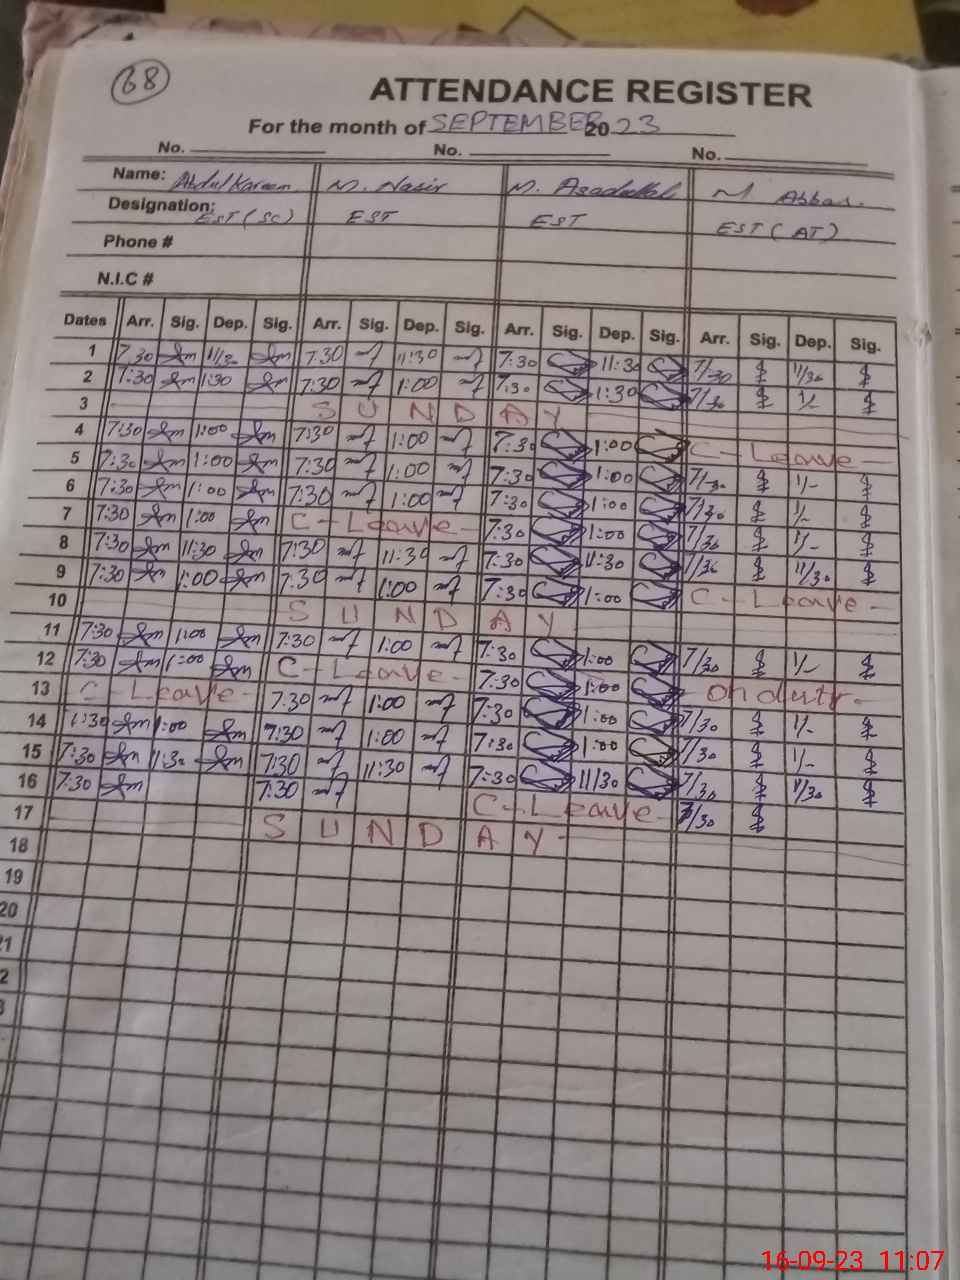 68
ATTENDANCE REGISTER
For the month of SEPTEMBER 2023
No. No. No.
Name: Abdul Kareem M. Nasir M. Asadullah M Abbas.
Designation: EST (SC) EST EST EST (AT)
Phone #
N.I.C #
Dates Arr. Sig. Dep. Sig. Arr. Sig. Dep. Sig. Arr. Sig. Dep. Sig. Arr. Sig. Dep. Sig.
1 7.30 11/30 7.30 11:30 7:30 11:30 7/30 11/30
2 7:30 1:30 7:30 1:00 7:30 1:30 7/30 1/-
3 SUNDAY
4 7:30 1:00 7:30 1:00 7:30 1:00 C-Leave
5 7:30 1:00 7:30 1:00 7:30 1:00 7/30 1/-
6 7:30 1:00 7:30 1:00 7:30 1:00 7/30 1/-
7 7:30 1:00 C-Leave 7:30 1:00 7/30 1/-
8 7:30 11:30 7:30 11:30 7:30 11:30 7/30 11/30
9 7:30 1:00 7:30 1:00 7:30 1:00 C-Leave
10 SUNDAY
11 7:30 1:00 7:30 1:00 7:30 1:00 7/30 1/-
12 7:30 1:00 C-Leave 7:30 1:00 on duty
13 C-Leave 7:30 1:00 7:30 1:00 7/30 1/-
14 7:30 1:00 7:30 1:00 7:30 1:00 7/30 1/-
15 7:30 11:30 7:30 11:30 7:30 11/30 7/30 11/30
16 7:30 7:30 C-Leave 7/30
17 SUNDAY
18
19
20
21
2
3
16-09-23 11:07